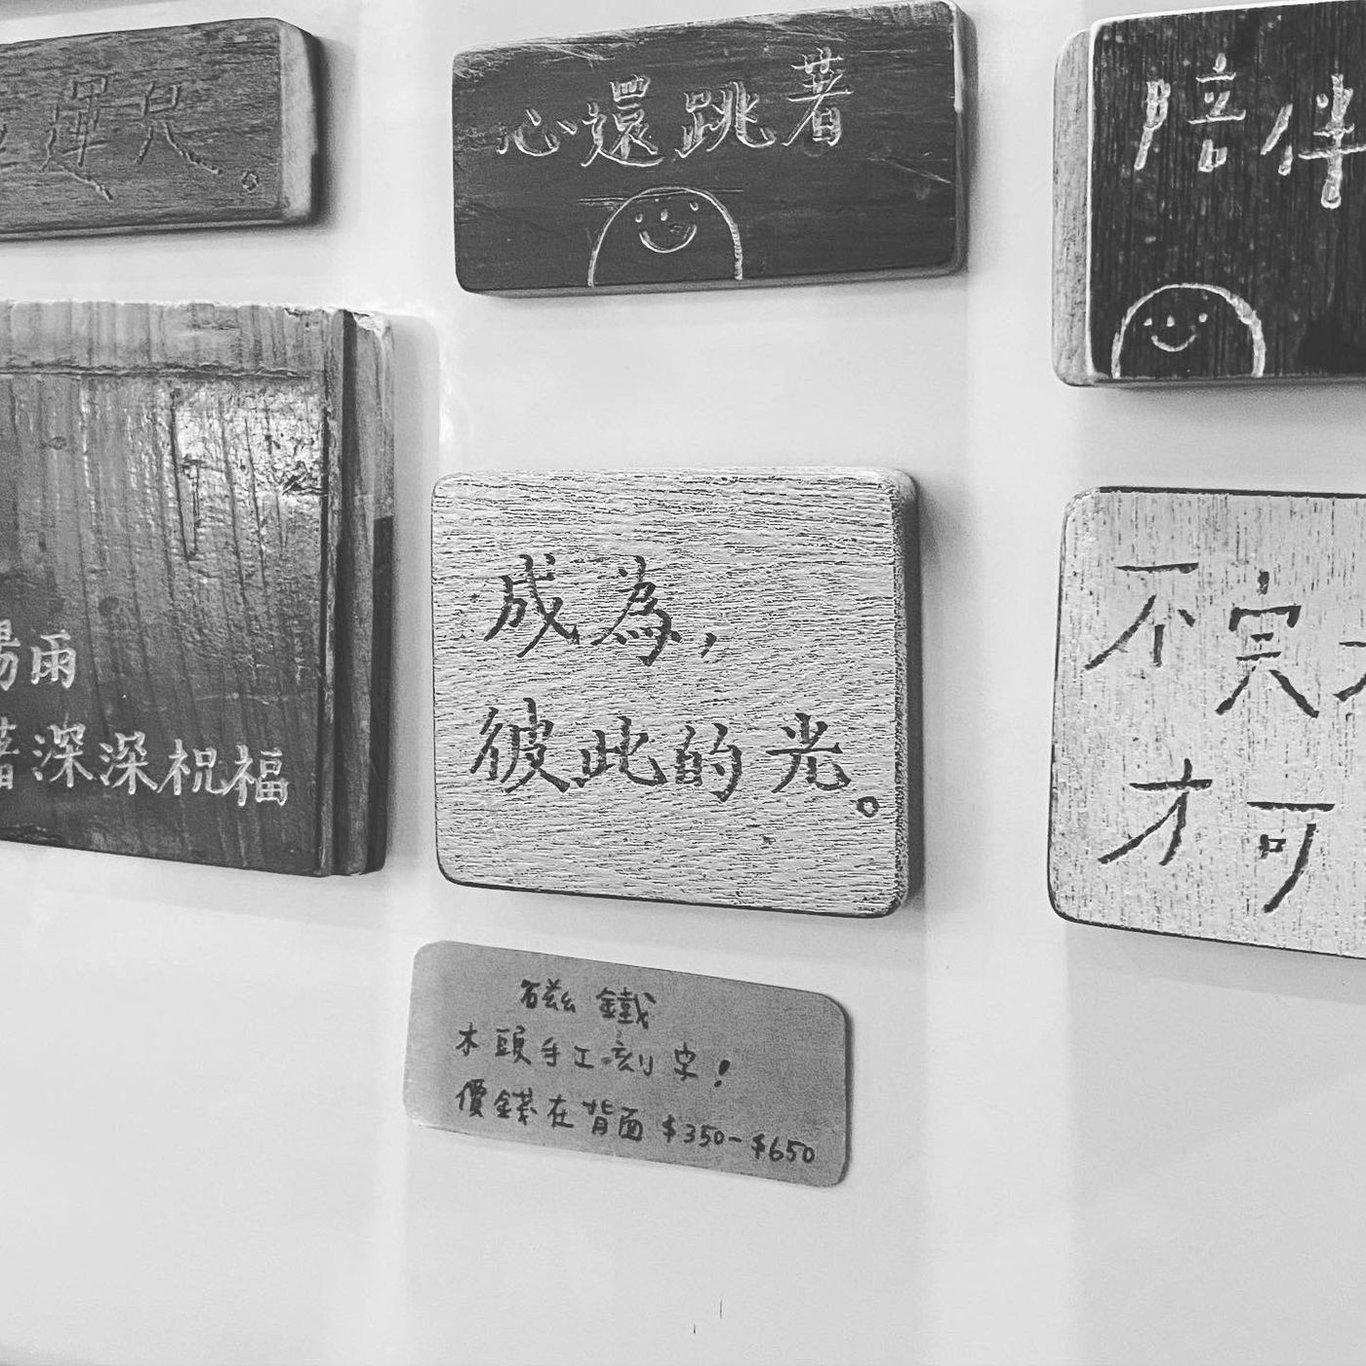 運兒。
心還跳著
陪伴
陽雨
著深深祝福
成為,
彼此的光。
不完
才可
磁鐵
木頭手工刻字!
價錢在背面 $350-$650